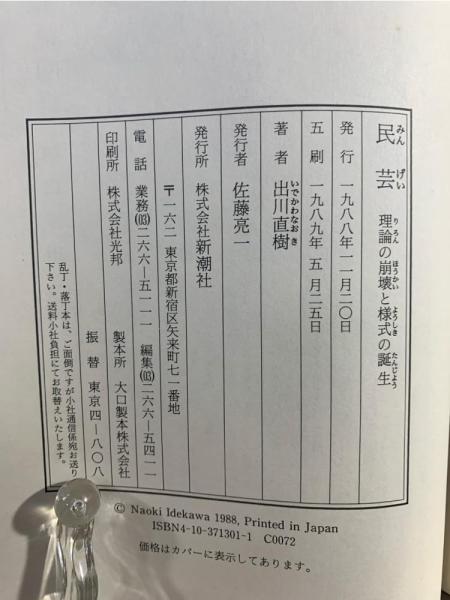 民芸 理論の崩壊と様式の誕生
みん げい りろん ほうかい ようしき たんじょう
発行 一九八八年一一月二〇日
五刷 一九八九年 五月二五日
著者 出川直樹
いでかわなおき
発行者 佐藤亮一
発行所 株式会社新潮社
〒一六二 東京都新宿区矢来町七一番地
電話 業務(03)二六六―五一一一 編集(03)二六六―五四一一
印刷所 株式会社光邦 製本所 大口製本株式会社
振替 東京四―八〇八
乱丁・落丁本は、ご面倒ですが小社通信係宛お送り
下さい。送料小社負担にてお取替えいたします。
© Naoki Idekawa 1988, Printed in Japan
ISBN4-10-371301-1 C0072
価格はカバーに表示してあります。